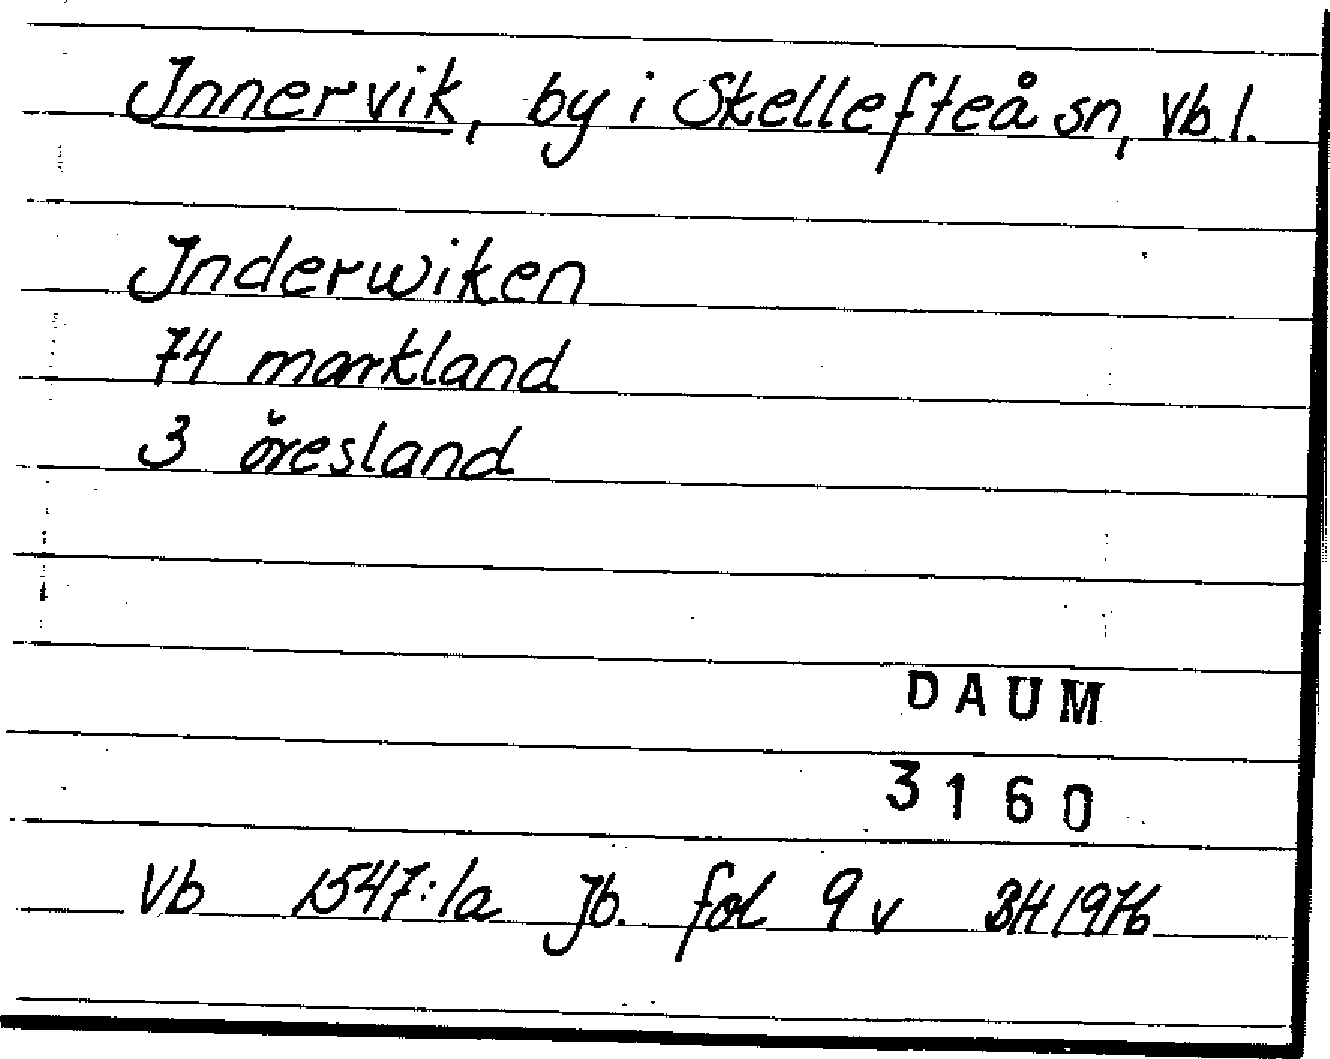 Innervik, by i Skellefteå sn, Vb.l.
Inderwiken
74 markland
3 öresland
DAUM
3160
Vb 1547:1a Jb. fol 9 v BH 1976